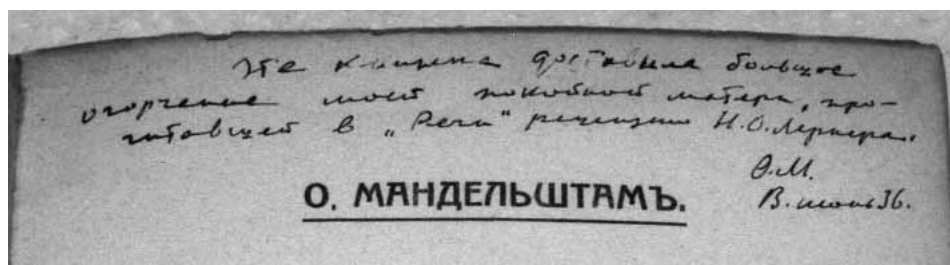 Эта книжка доставила большое
огорчение моей покойной матери, про-
читавшей в „Речи“ рецензию Н.О.Лернера.
О.М.
В. июнь 36.
О. МАНДЕЛЬШТАМЪ.